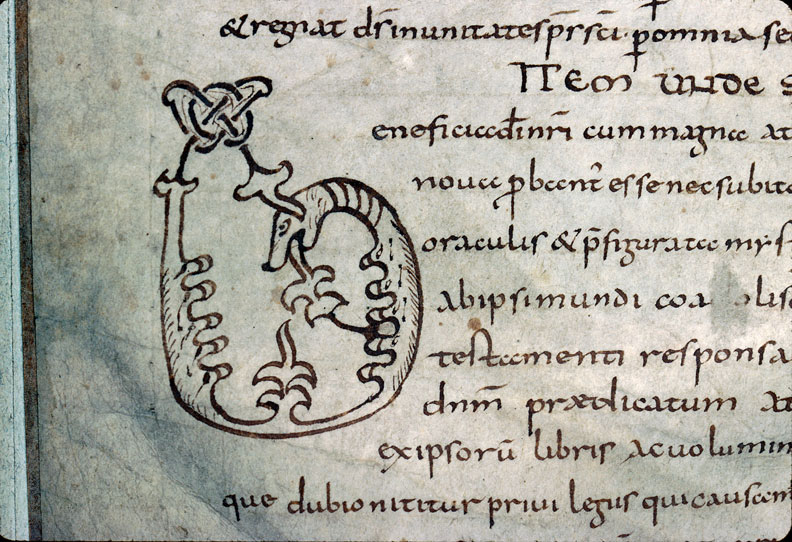 & regnat dr̄ inunitate sp̄r sc̄i p omnia se
ITEM UNDE S
B eneficia dī nr̄i cum magna at
noua pbent esse nec subito
oraculis & p̄figurata mys
ab ipsi mundi coa olis
testamenti responsa
dnm̄ prædicatum at
ex ipsorū libris ac uolumin
que dubio nititur privi legus qui causcem